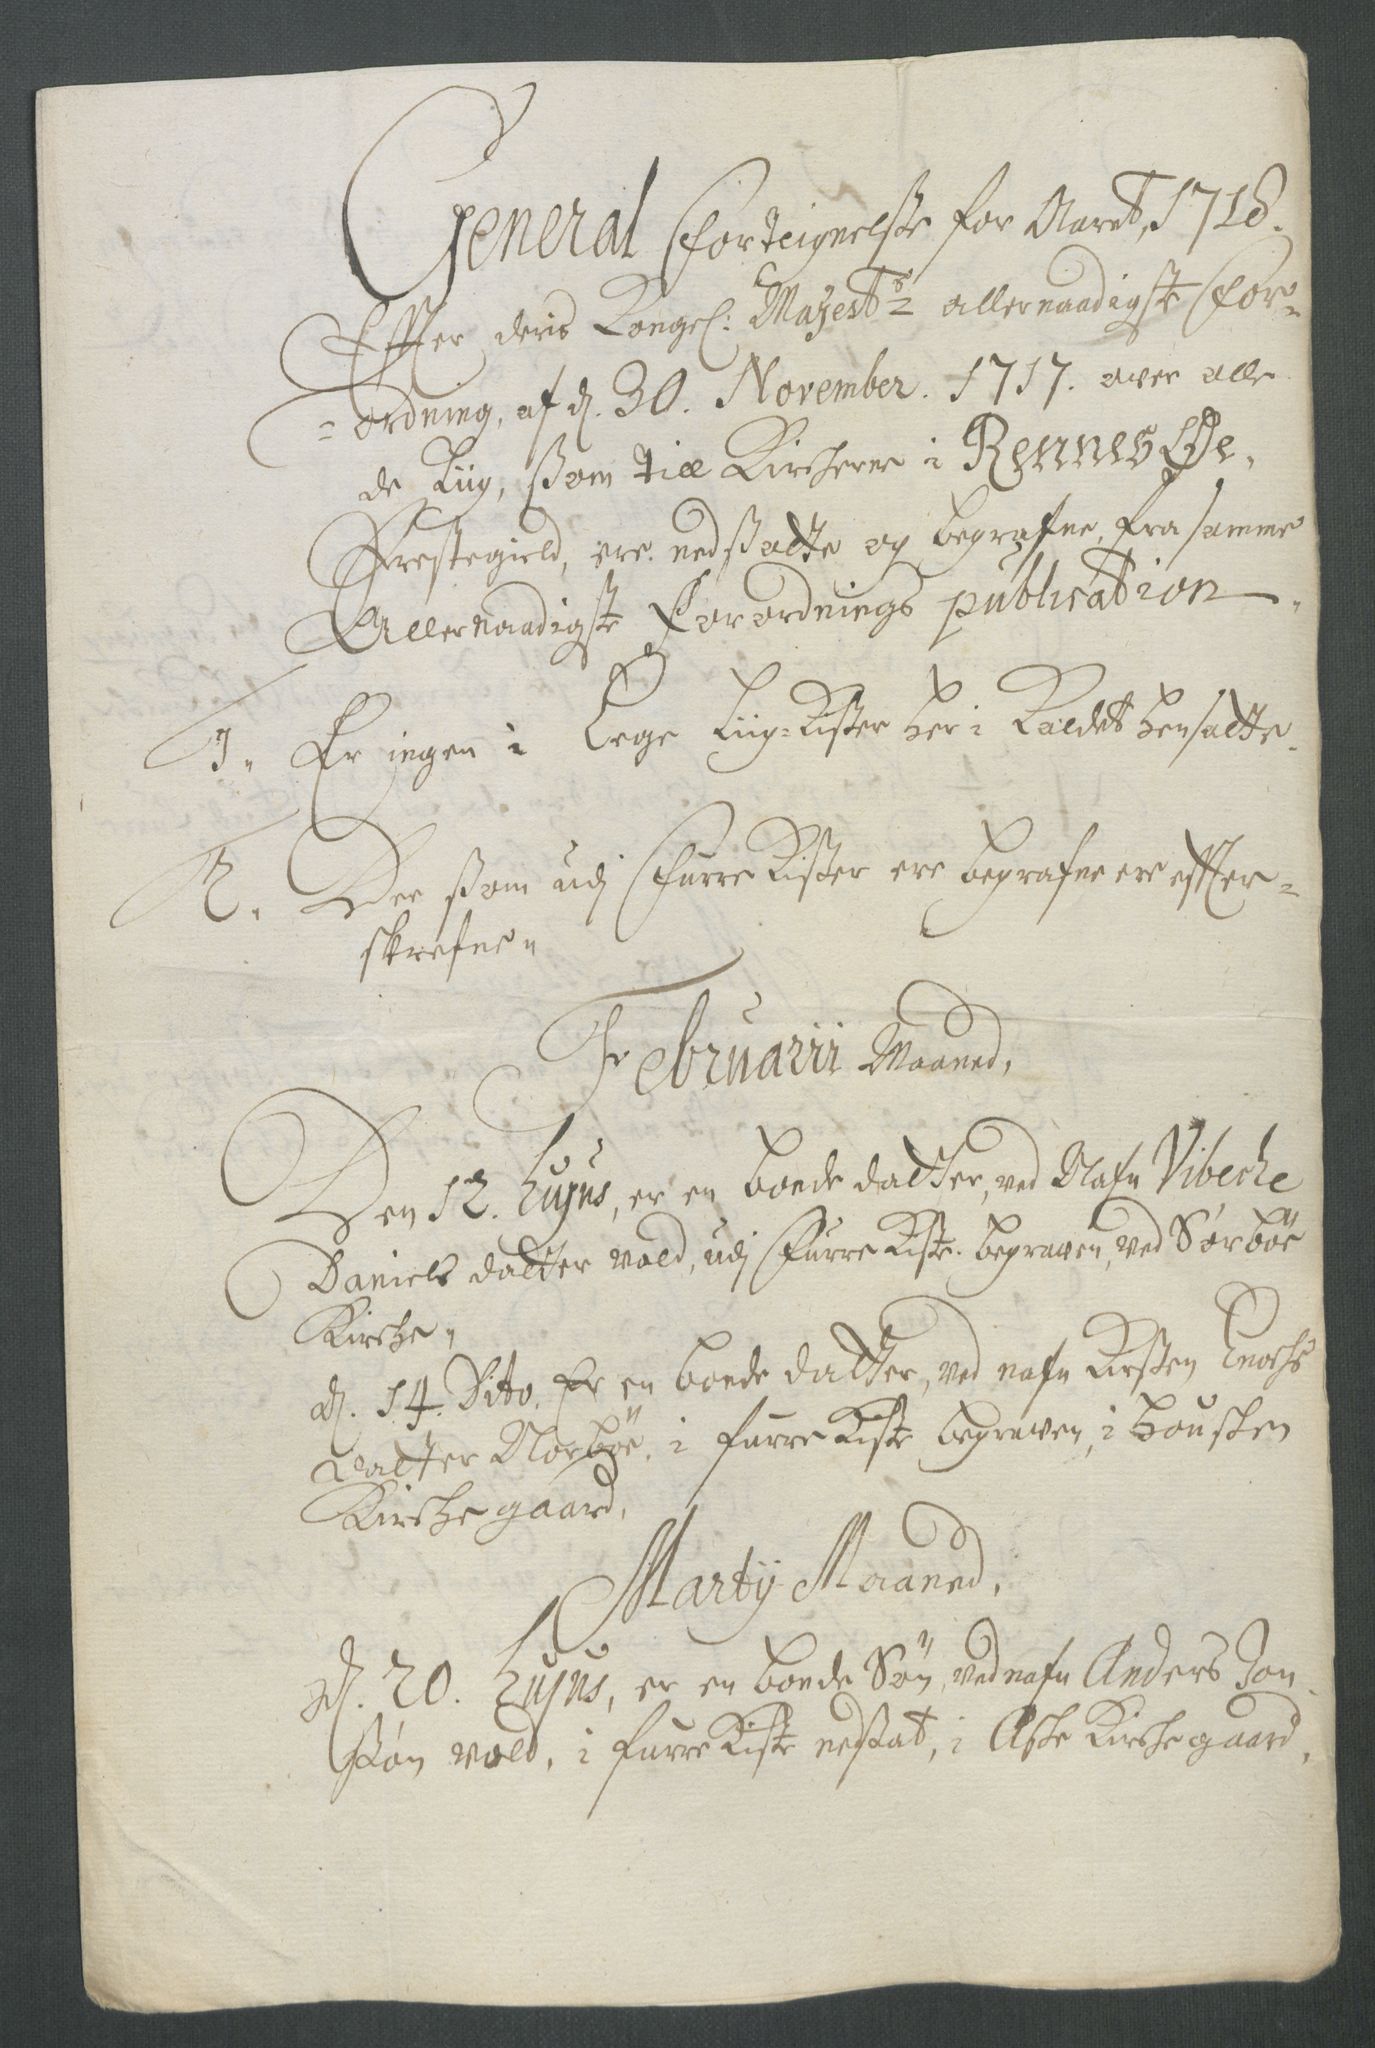 General Forteignelse for Aaret, 1718.
Effter deris Kongel: Mayestts allernaadigste For=
=ordning, af d. 30. November. 1717. over alle
de Liig, ßom till Kircherne i Rennes Øe,
Prestegield, ere nedßatte og begrafne, fra samme
Allernaadigste Forordnings publication.
1. Er ingen i Eege Liig=Kister her i Kaldet hensatte.
2. Dee ßom udj Furre Kister ere begrafne ere effter=
skrefne.
Februarii Maaned,
Den 12. hujus, er en bonde datter, ved Nafn Vibeche
Daniels datter vold, udj Furre Kiste begraven, ved Sørböe
Kirche.
d. 14. Dito. Er en bonde datter, ved nafn Kirsten Enochs
datter Norböe, i furre Kiste begraven, i Housken
Kirche gaard,
Martij Maaned,
d. 20. hujus, er en bonde Sön, ved nafn Anders Jon
ßøn vold, i furre Kiste nedsat, i Aske Kirche gaard,